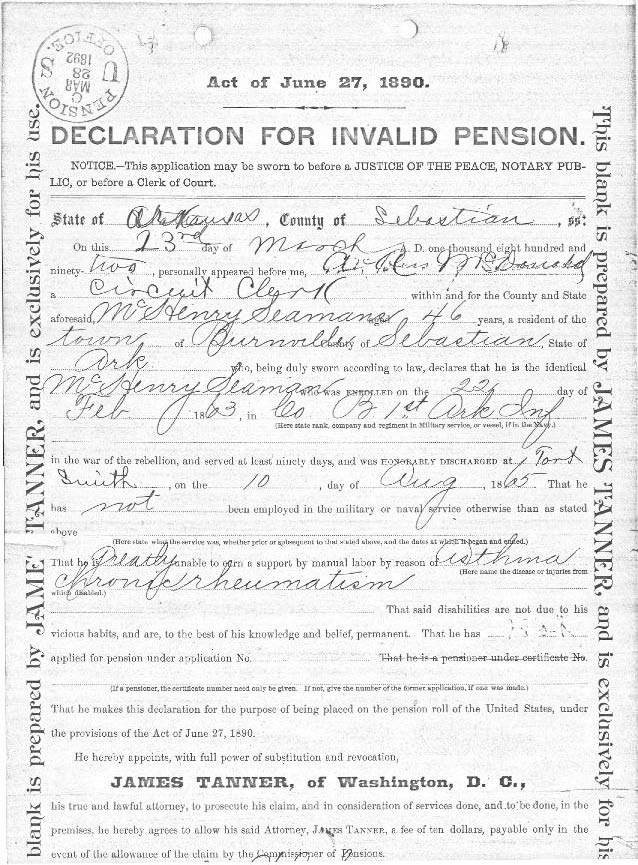 U.S. PENSION OFFICE
MAR 28 1892
Act of June 27, 1890.
DECLARATION FOR INVALID PENSION.
NOTICE.—This application may be sworn to before a JUSTICE OF THE PEACE, NOTARY PUB-
LIC, or before a Clerk of Court.
State of Arkansas, County of Sebastian, ss:
On this 23rd day of March A. D. one thousand eight hundred and
ninety-two, personally appeared before me, McDonald
a Circuit Clerk within and for the County and State
aforesaid, McHenry Seamans aged 46 years, a resident of the
town of Burnville County of Sebastian, State of
Ark who, being duly sworn according to law, declares that he is the identical
McHenry Seaman who was ENROLLED on the day of
Feb 1863, in Co B 1st Ark Inf
(Here state rank, company and regiment in Military service, or vessel, if in the Navy.)
in the war of the rebellion, and served at least ninety days, and was HONORABLY DISCHARGED at Fort
Smith, on the 10, day of Aug, 1865 That he
has not been employed in the military or naval service otherwise than as stated
above
(Here state what the service was, whether prior or subsequent to that stated above, and the dates at which it began and ended.)
That he is greatly unable to earn a support by manual labor by reason of asthma
(Here name the disease or injuries from
chronic rheumatism
which disabled.)
That said disabilities are not due to his
vicious habits, and are, to the best of his knowledge and belief, permanent. That he has
applied for pension under application No. That he is a pensioner under certificate No.
(If a pensioner, the certificate number need only be given. If not, give the number of the former application, if one was made.)
That he makes this declaration for the purpose of being placed on the pension roll of the United States, under
the provisions of the Act of June 27, 1890.
He hereby appoints, with full power of substitution and revocation,
JAMES TANNER, of Washington, D. C.,
his true and lawful attorney, to prosecute his claim, and in consideration of services done, and to be done, in the
premises, he hereby agrees to allow his said Attorney, JAMES TANNER, a fee of ten dollars, payable only in the
event of the allowance of the claim by the Commissioner of Pensions.
blank is prepared by JAME TANNER, and is exclusively for his use.
This blank is prepared by JAMES TANNER, and is exclusively for his